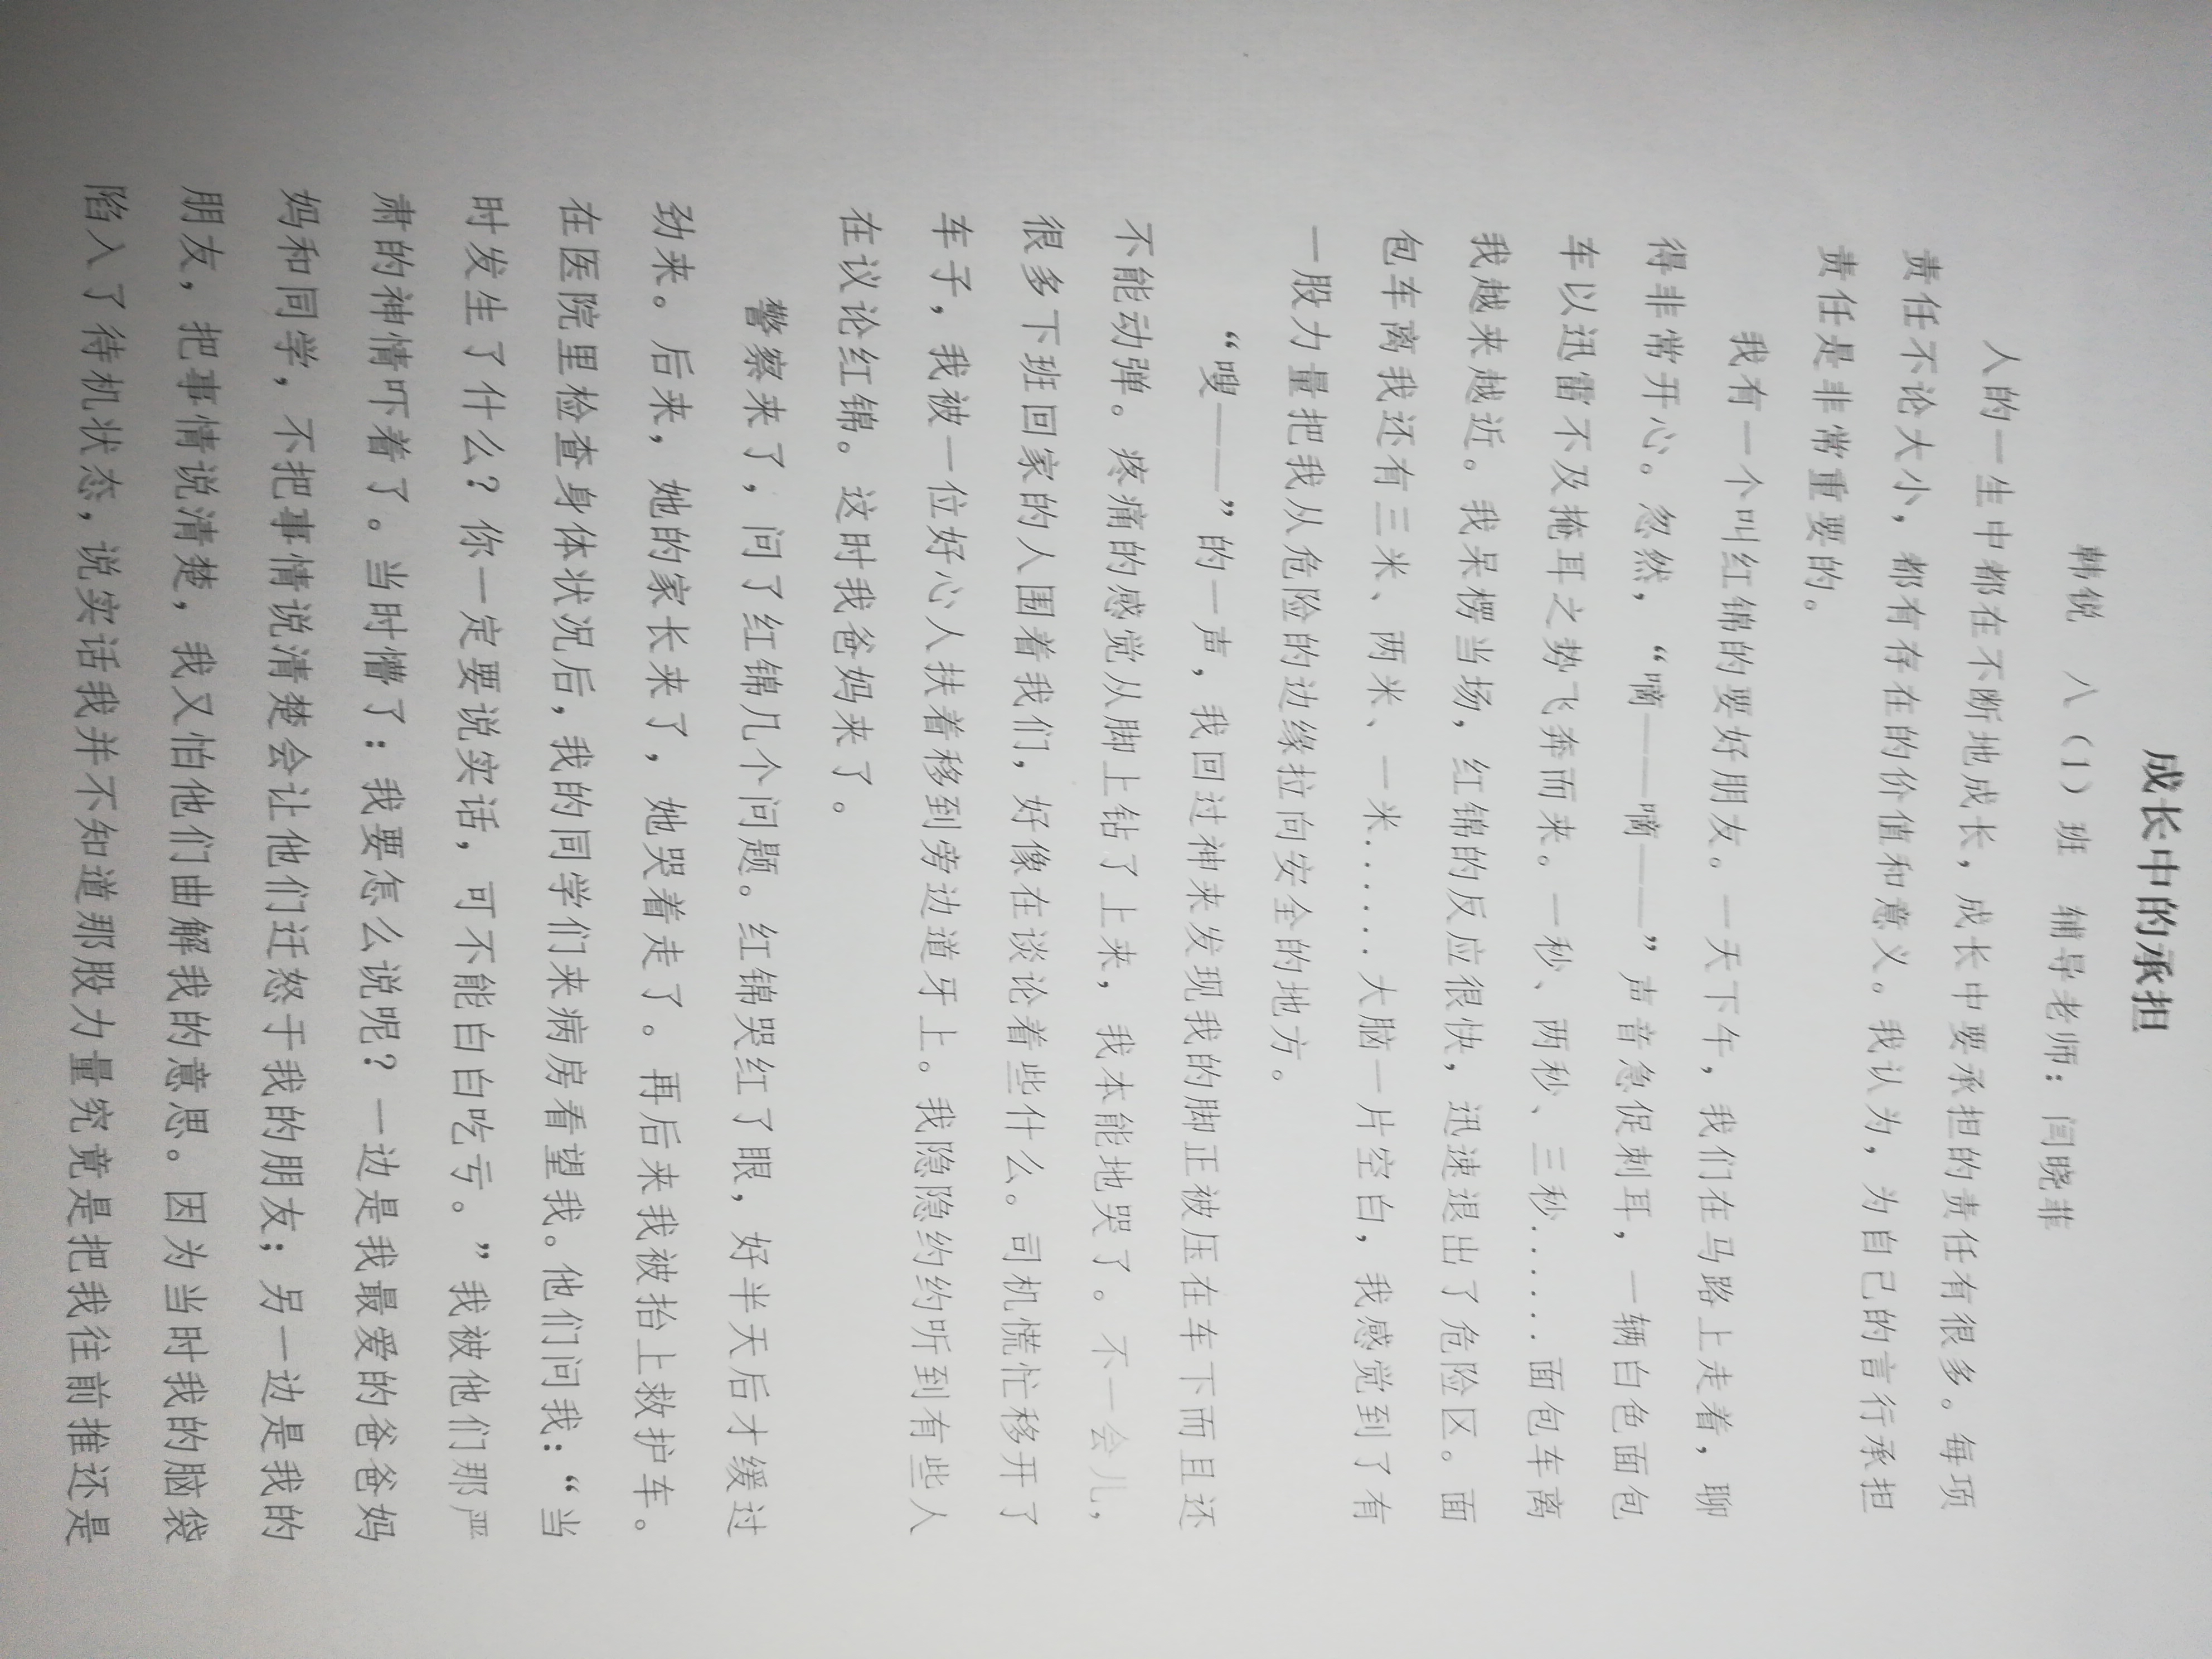 成长中的承担
韩锐 八（1）班 辅导老师：闫晓菲
人的一生中都在不断地成长，成长中要承担的责任有很多。每项
责任不论大小，都有存在的价值和意义。我认为，为自己的言行承担
责任是非常重要的。
我有一个叫红锦的要好朋友。一天下午，我们在马路上走着，聊
得非常开心。忽然，“嘀——嘀——”声音急促刺耳，一辆白色面包
车以迅雷不及掩耳之势飞奔而来。一秒、两秒、三秒……面包车离
我越来越近。我呆楞当场，红锦的反应很快，迅速退出了危险区。面
包车离我还有三米、两米、一米……大脑一片空白，我感觉到了有
一股力量把我从危险的边缘拉向安全的地方。
“嗖——”的一声，我回过神来发现我的脚正被压在车下而且还
不能动弹。疼痛的感觉从脚上钻了上来，我本能地哭了。不一会儿，
很多下班回家的人围着我们，好像在谈论着些什么。司机慌忙移开了
车子，我被一位好心人扶着移到旁边道牙上。我隐隐约约听到有些人
在议论红锦。这时我爸妈来了。
警察来了，问了红锦几个问题。红锦哭红了眼，好半天后才缓过
劲来。后来，她的家长来了，她哭着走了。再后来我被抬上救护车。
在医院里检查身体状况后，我的同学们来病房看望我。他们问我：“当
时发生了什么？你一定要说实话，可不能白白吃亏。”我被他们那严
肃的神情吓着了。当时懵了：我要怎么说呢？一边是我最爱的爸爸妈
妈和同学，不把事情说清楚会让他们迁怒于我的朋友；另一边是我的
朋友，把事情说清楚，我又怕他们曲解我的意思。因为当时我的脑袋
陷入了待机状态，说实话我并不知道那股力量究竟是把我往前推还是